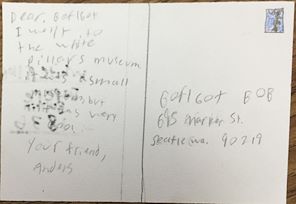 Dear, Goflgot
I went to
the white
pillars museum
small
but
was very
Your friend,
anders
Goflgot BOB
695 marker St.
Seatle wa. 90219